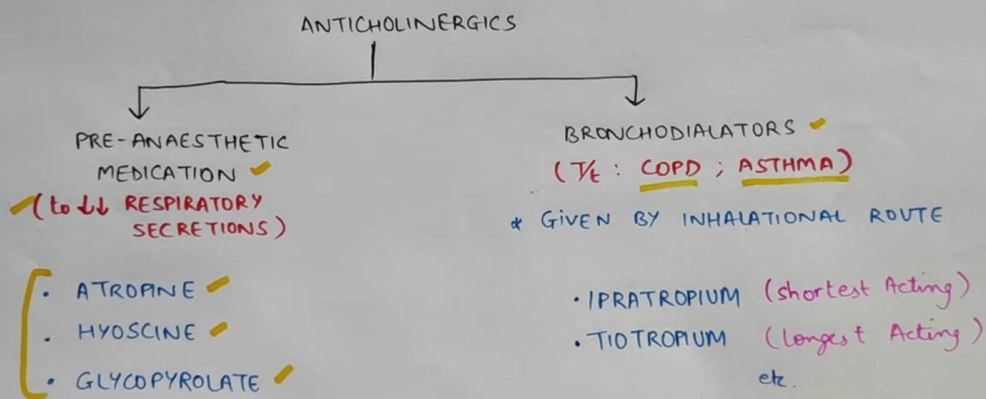 ANTICHOLINERGICS
PRE-ANAESTHETIC
MEDICATION
(to ↓↓ RESPIRATORY
SECRETIONS)
. ATROPINE
. HYOSCINE
. GLYCOPYROLATE
BRONCHODIALATORS
(T/t : COPD ; ASTHMA)
* GIVEN BY INHALATIONAL ROUTE
. IPRATROPIUM (shortest Acting)
. TIOTROPIUM (longest Acting)
etc.